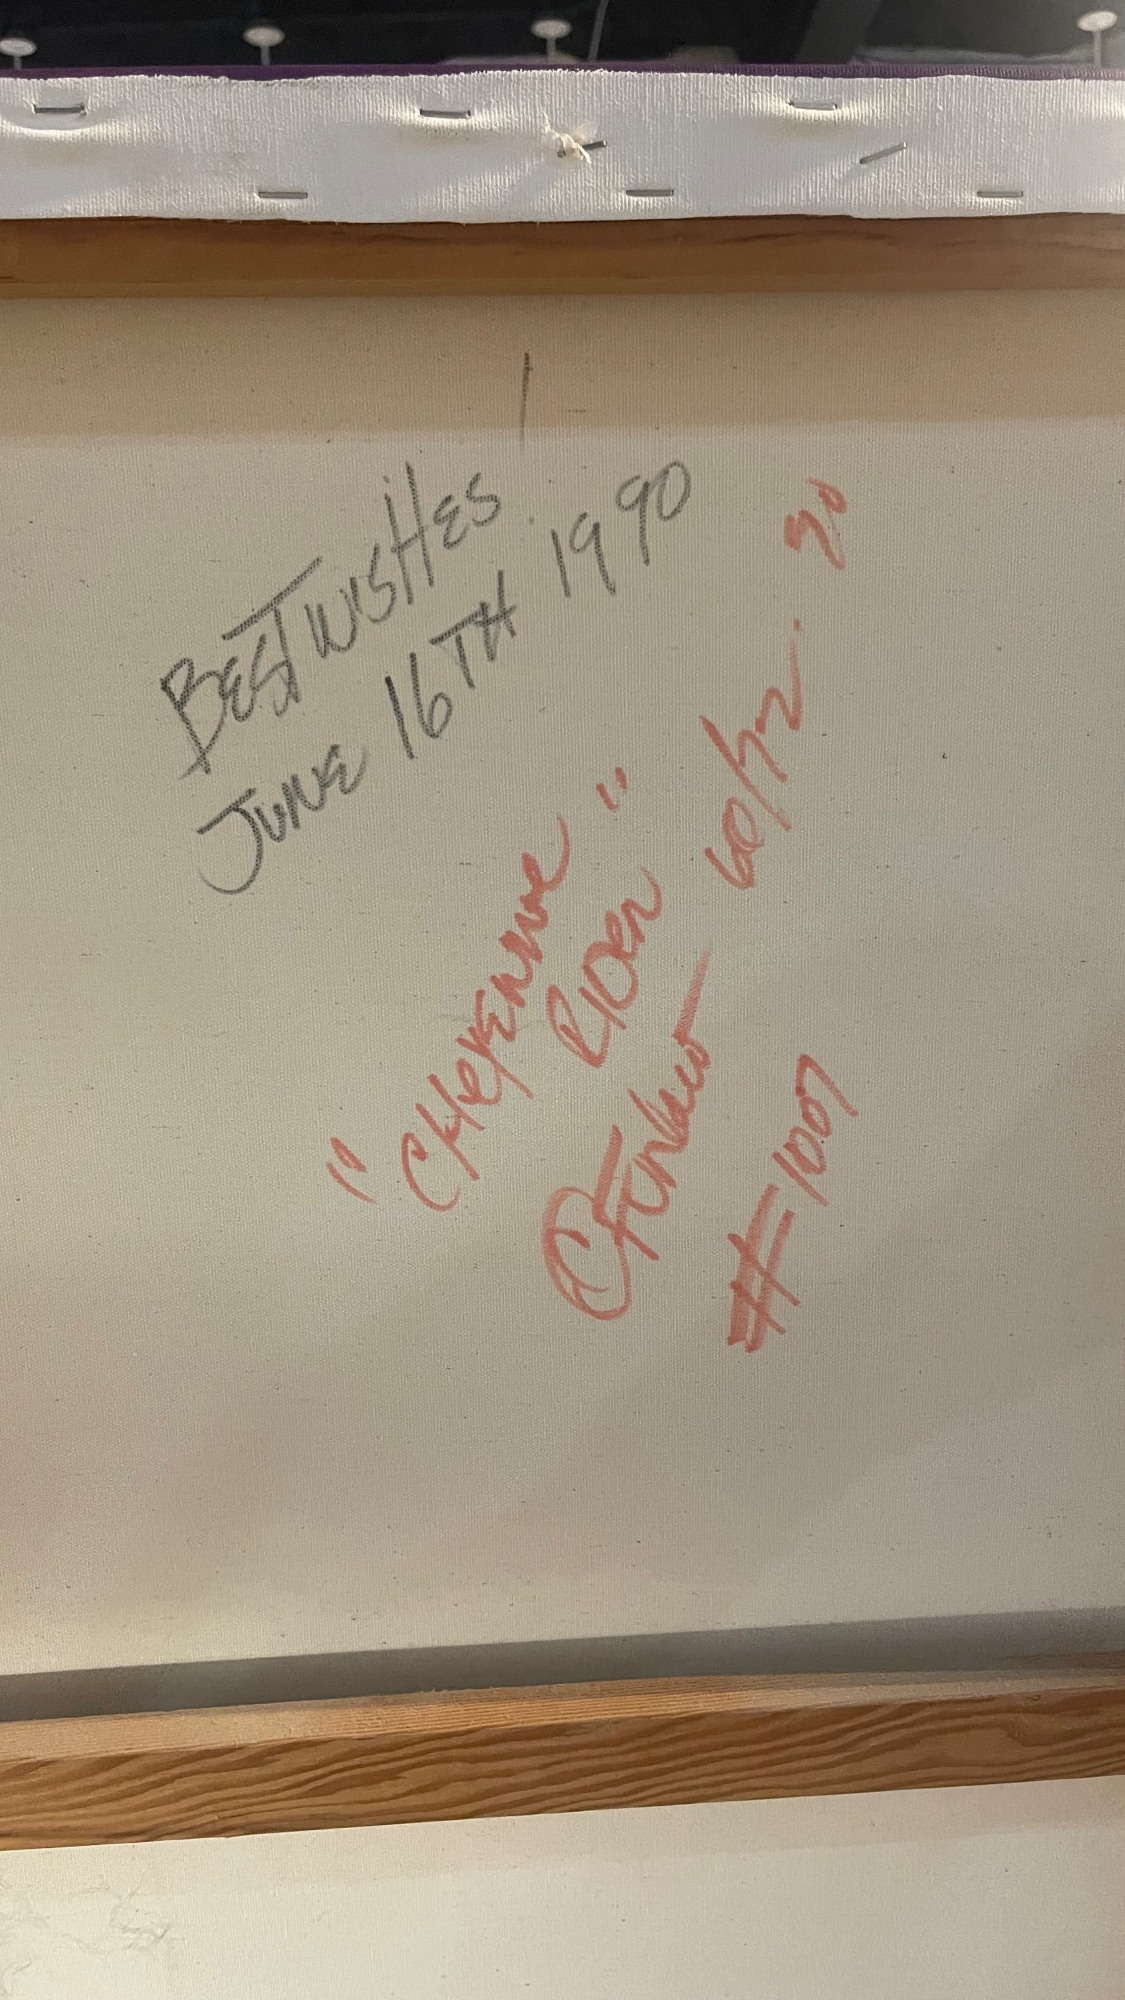 BEST WISHES
JUNE 16TH 1990
"CHEYENNE
RIDER"
60/72. 90
#1007